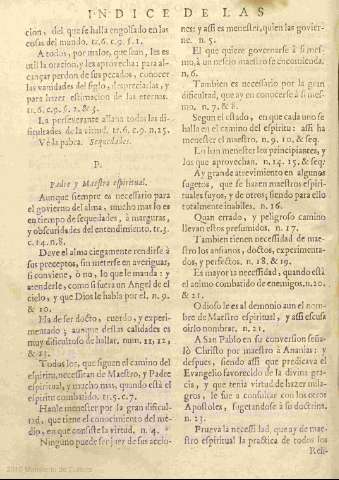 INDICE DE LAS
cion, del que se halla engolfado en las
cosas del mundo, tr. 6. c. 9. §. 1.
A todos, por malos, que sean, les es
util la oracion, y les aprovecha; para al-
cançar perdon de sus pecados, conocer
las vanidades del siglo, despreciarlas, y
para hazer estimacion de las eternas.
tr. 6. c. 9. §. 2. & 3.
La perseverante allana todos las di-
ficultades de la virtud. tr. 6. c. 9. n. 25.
Vè la pabra. Sequedades.
P.
Padre y Maestro espiritual.
Aunque siempre es necessario para
el govierno del alma, mucho mas lo es
en tiempo de sequedades, à marguras,
y obscuridades del entendimiento. tr. 3.
c. 14. n. 8.
Deve el alma ciegamente rendirse à
sus preceptos, sin meterse en averiguar,
si conviene, ò no, lo que le manda: y
atenderle, como si fuera un Angel de el
cielo, y que Dios le habla por el. n. 9.
& 10.
Ha de ser docto, cuerdo, y experi-
mentado; aunque destas calidades es
muy dificultoso de hallar. num. 11, 12,
& 23.
Todas los, que siguen el camino del
espiritu, necessitan de Maestro, y Padre
espiritual, y mucho mas, quando està el
espiritu combatido. tr. 5. c. 7.
Hanle menester por la gran dificul-
tad, que tiene el conocimiento del me-
dio, en que consiste la virtud. n. 4.
Ninguno puede ser juez de sus accio-
nes: y assi es menester, quien las govier-
ne. n. 5.
El que quiere governarse à si mes-
mo, à un necio maestro se encomienda.
n. 6.
Tambien es necessario por la gran
dificultad, que ay en conocerse à si mes-
mo. n. 7. & 8.
Segun el estado, en que cada uno se
halla en el camino del espiritu: assi ha
menester el maestro. n. 9. 10. & seq.
Lo han menester los principiantes, y
los que aprovechan. n. 14. 15. & seq.
Ay grande atrevimiento en algunos
sugetos, que se hazen maestros espiri-
tuales suyos, y de otros, siendo para ello
totalmente inabiles. n. 16.
Quan errado, y peligroso camino
llevan estos presumidos. n. 17.
Tambien tienen necessidad de mae-
stro los ansianos, doctos, experimenta-
dos, y perfectos. n. 18. & 19.
Es mayor la necessidad, quando està
el animo combatido de enemigos. n. 20.
& 21.
Odioso le es al demonio aun el nom-
bre de Maestro espiritual, y assi escusa
oirlo nombrar. n. 21.
A San Pablo en su conversion seña-
lò Christo por maestro à Ananias: y
despues, siendo assi que predicava el
Evangelio favorecido de la divina gra-
cia, y que tenia virtud de hazer mila-
gros, le fue a consultar con los otros
Apostoles, sugetandose à su doctrina.
n. 23.
Prueva la necessidad, que ay de mae-
stro espiritual la practica de todos los
Reli-